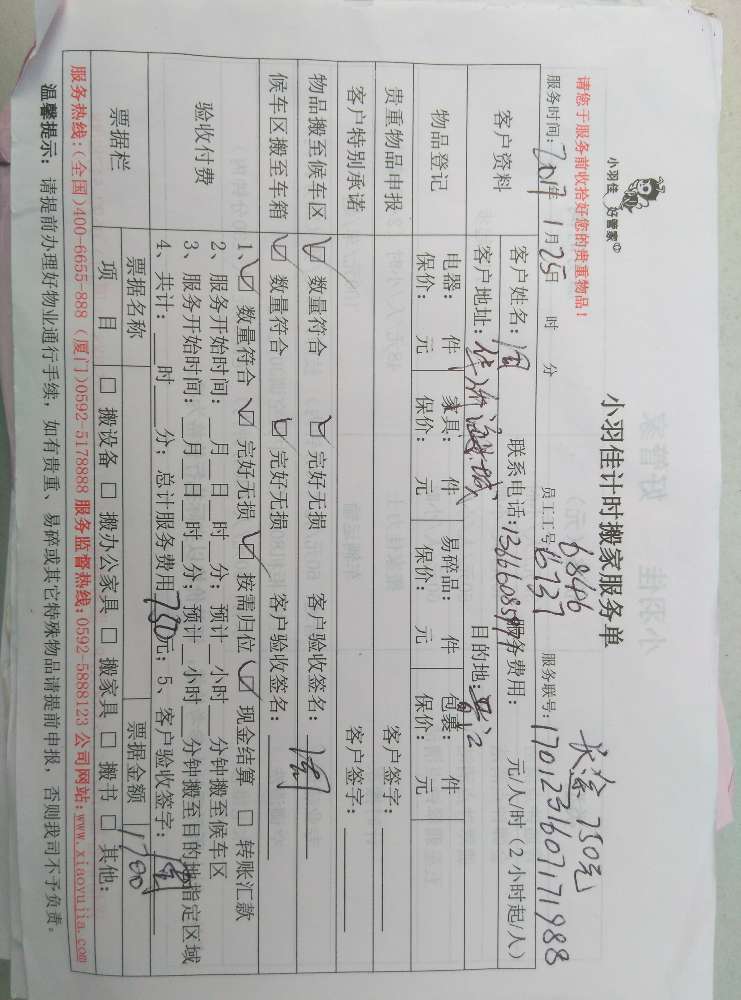 小羽佳 好管家
小羽佳计时搬家服务单
长途 750元
请您于服务前收拾好您的贵重物品！
6846
服务时间：2017年 1月25日 时 分 员工工号 16737 服务联号：1701231607171988
客户资料
客户姓名： 联系电话： 服务费用： 元/人/时（2小时起/人）
客户地址： 目的地：晋江
物品登记
电器： 件 家具： 件 易碎品： 件 包裹： 件
保价： 元 保价： 元 保价： 元 保价： 元
贵重物品申报 客户签字：
客户特别承诺 客户签字：
物品搬至候车区 ☑ 数量符合 ☑ 完好无损 客户验收签名：
候车区搬至车箱 ☑ 数量符合 ☑ 完好无损 客户验收签名：
验收付费
1、☑ 数量符合 ☑ 完好无损 ☑ 按需归位 ☑ 现金结算 □ 转账汇款
2、服务开始时间： 月 日 时 分；预计 小时 分钟搬至候车区
3、服务开始时间： 月 日 时 分；预计 小时 分钟搬至目的地指定区域
4、共计： 时 分；总计服务费用 750元；5、客户验收签字：
票据栏
票据名称 票据金额 1700
项 目 □ 搬设备 □ 搬办公家具 □ 搬家具 □ 搬书 □ 其他：
服务热线：（全国）400-6655-888（厦门）0592-5178888 服务监督热线：0592-5888123 公司网站：www.xiaoyujia.com
温馨提示： 请提前办理好物业通行手续，如有贵重、易碎或其它特殊物品请提前申报，否则我司不予负责。